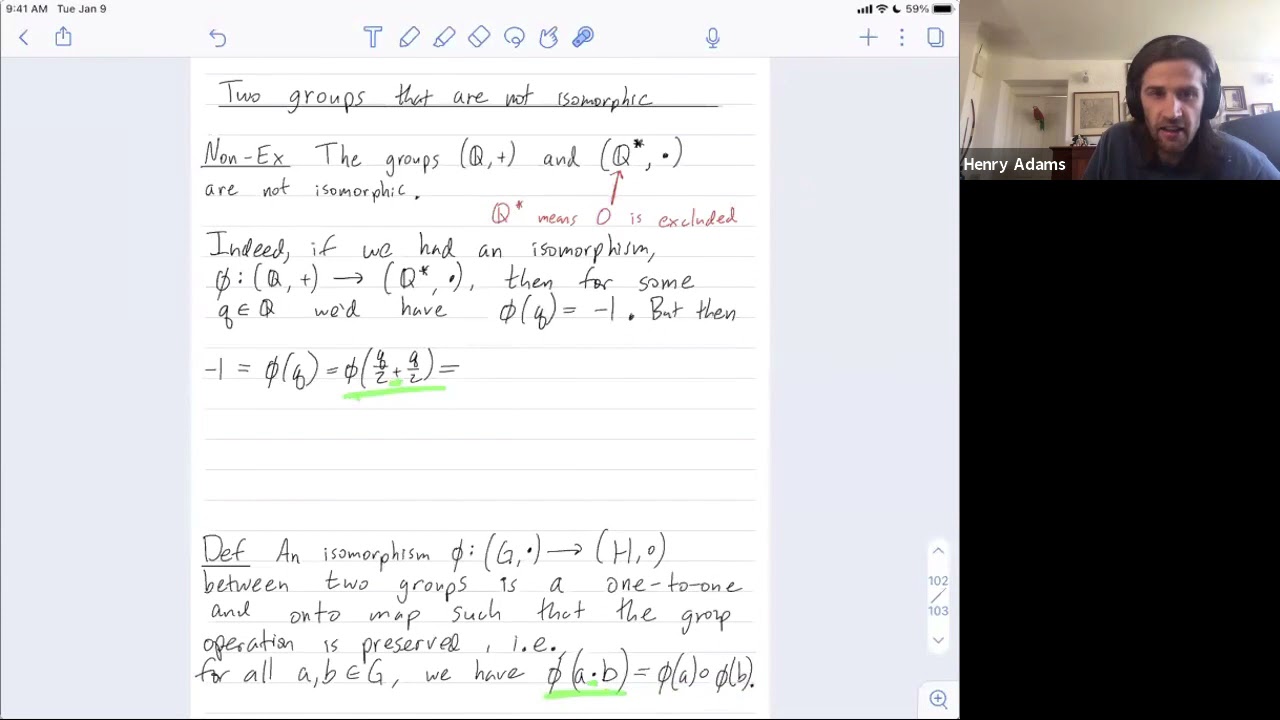 9:41 AM Tue Jan 9
59%
Two groups that are not isomorphic
Non-Ex The groups (ℚ, +) and (ℚ*, •)
are not isomorphic.
ℚ* means 0 is excluded
Indeed, if we had an isomorphism,
φ: (ℚ, +) → (ℚ*, •), then for some
q ∈ ℚ we'd have φ(q) = -1. But then
-1 = φ(q) = φ(q/2 + q/2) =
Def An isomorphism φ: (G, •) → (H, ∘)
between two groups is a one-to-one
and onto map such that the group
operation is preserved, i.e.,
for all a, b ∈ G, we have φ(a • b) = φ(a) ∘ φ(b).
102
/
103
Henry Adams